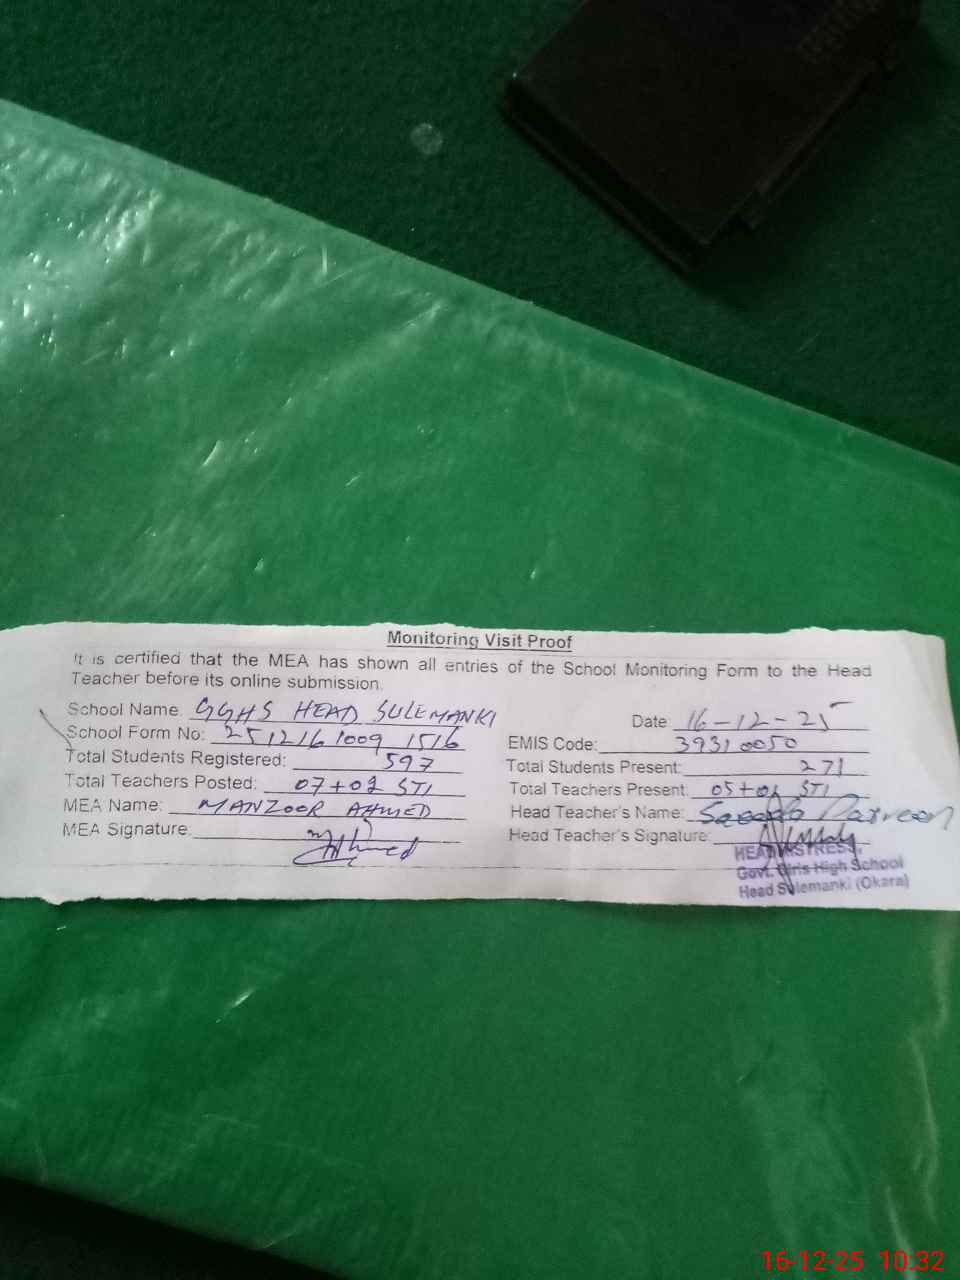 Monitoring Visit Proof
It is certified that the MEA has shown all entries of the School Monitoring Form to the Head
Teacher before its online submission.
School Name: GGHS HEAD SULEMANKI
Date: 16-12-25
School Form No: 251216 1009 1516
EMIS Code: 39310050
Total Students Registered: 597
Total Students Present: 271
Total Teachers Posted: 07+ STI
Total Teachers Present: 05+ STI
MEA Name: MANZOOR AHMED
Head Teacher's Name: Parveen
MEA Signature: Ahmed
Head Teacher's Signature:
HEADMISTRESS,
Govt. Girls High School
Head Sulemanki (Okara)
16-12-25 10:32